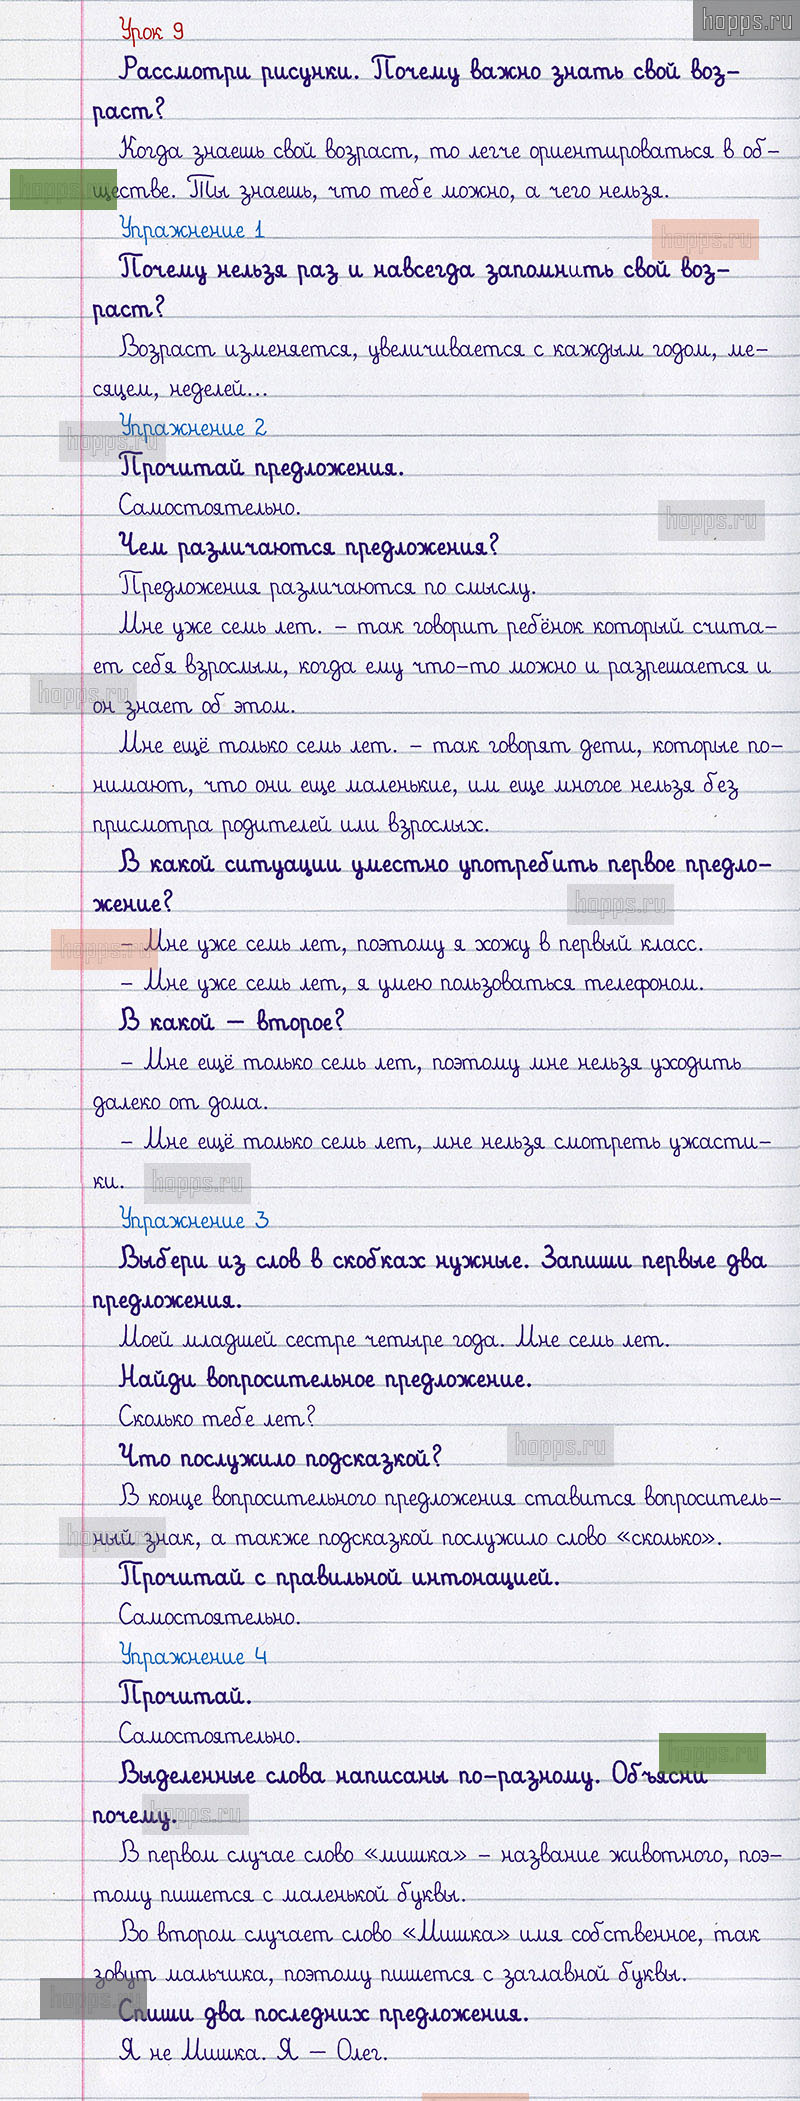 hopps.ru
Урок 9
Рассмотри рисунки. Почему важно знать свой воз-
раст?
Когда знаешь свой возраст, то легче ориентироваться в об-
hopps.ru
ществе. Ты знаешь, что тебе можно, а чего нельзя.
Упражнение 1
hopps.ru
Почему нельзя раз и навсегда запомнить свой воз-
раст?
Возраст изменяется, увеличивается с каждым годом, ме-
сяцем, неделей...
Упражнение 2
hopps.ru
Прочитай предложения.
Самостоятельно.
hopps.ru
Чем различаются предложения?
Предложения различаются по смыслу.
Мне уже семь лет. – так говорит ребёнок который счита-
ет себя взрослым, когда ему что-то можно и разрешается и
hopps.ru
он знает об этом.
Мне ещё только семь лет. – так говорят дети, которые по-
нимают, что они еще маленькие, им еще многое нельзя без
присмотра родителей или взрослых.
В какой ситуации уместно употребить первое предло-
жение?
hopps.ru
– Мне уже семь лет, поэтому я хожу в первый класс.
hopps.ru
– Мне уже семь лет, я умею пользоваться телефоном.
В какой – второе?
– Мне ещё только семь лет, поэтому мне нельзя уходить
далеко от дома.
– Мне ещё только семь лет, мне нельзя смотреть ужасти-
ки.
hopps.ru
Упражнение 3
Выбери из слов в скобках нужные. Запиши первые два
предложения.
Моей младшей сестре четыре года. Мне семь лет.
Найди вопросительное предложение.
Сколько тебе лет?
hopps.ru
Что послужило подсказкой?
В конце вопросительного предложения ставится вопроситель-
hopps.ru
ный знак, а также подсказкой послужило слово «сколько».
Прочитай с правильной интонацией.
Самостоятельно.
Упражнение 4
Прочитай.
Самостоятельно.
hopps.ru
Выделенные слова написаны по-разному. Объясни
почему.
hopps.ru
В первом случае слово «мишка» – название животного, поэ-
тому пишется с маленькой буквы.
Во втором случает слово «Мишка» имя собственное, так
зовут мальчика, поэтому пишется с заглавной буквы.
hopps.ru
Спиши два последних предложения.
Я не Мишка. Я – Олег.